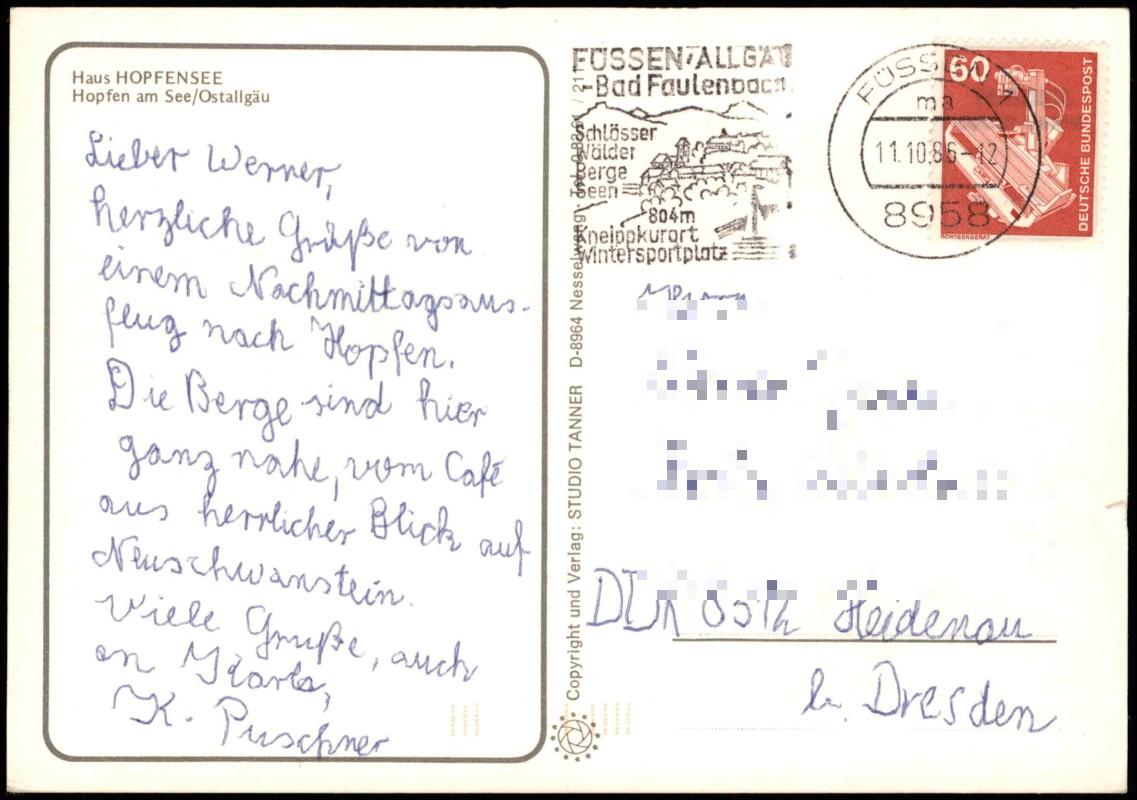 Haus HOPFENSEE
Hopfen am See/Ostallgäu
Lieber Werner,
herzliche Grüße von
einem Nachmittagsaus-
flug nach Hopfen.
Die Berge sind hier
ganz nahe, vom Café
aus herrlicher Blick auf
Neuschwanstein.
Viele Grüße, auch
an Karla,
K. Puschner
Copyright und Verlag: STUDIO TANNER D-8964 Nesselwang
FÜSSEN/ALLGÄU
-Bad Faulenbach
Schlösser
Wälder
Berge
Seen
804m
Kneippkurort
Wintersportplatz
FÜSSEN 1
ma
11.10.86-12
8958
60
DEUTSCHE BUNDESPOST
RÖNTGENGERÄT
DDR Heidenau
b. Dresden